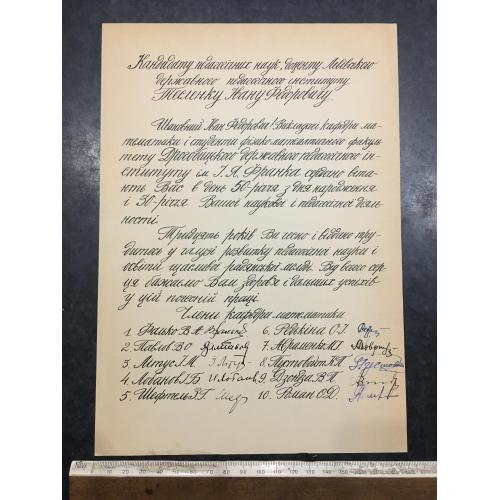 Кандидату педагогічних наук, доценту Київського
державного педагогічного інституту
Тесленку Івану Федоровичу.
Шановний Іван Федорович! Викладачі кафедри ма-
тематики і студенти фізико-математичного факуль-
тету Дрогобицького державного педагогічного ін-
ституту ім. І. Я. Франка сердечно віта-
ють Вас в день 50-річчя з дня народження
і 30-річчя Вашої наукової і педагогічної діяль-
ності.
Тридцять років Ви чесно і віддано тру-
дитесь у галузі розвитку педагогічної науки і
освіти щасливої радянської молоді. Від всього сер-
ця бажаємо Вам здоров'я і дальших успіхів
у цій почесній праці.
Члени кафедри математики
1. Фалько В. 6. Редкіна О.І.
2. Павлов В.О. 7. Авраменко М.І.
3. 8. Пустовойт К.П.
4. Лобанов Г.Б. 9. Дзюндза В.П.
5. Шефтель З.Г. 10. Роман О.Д.